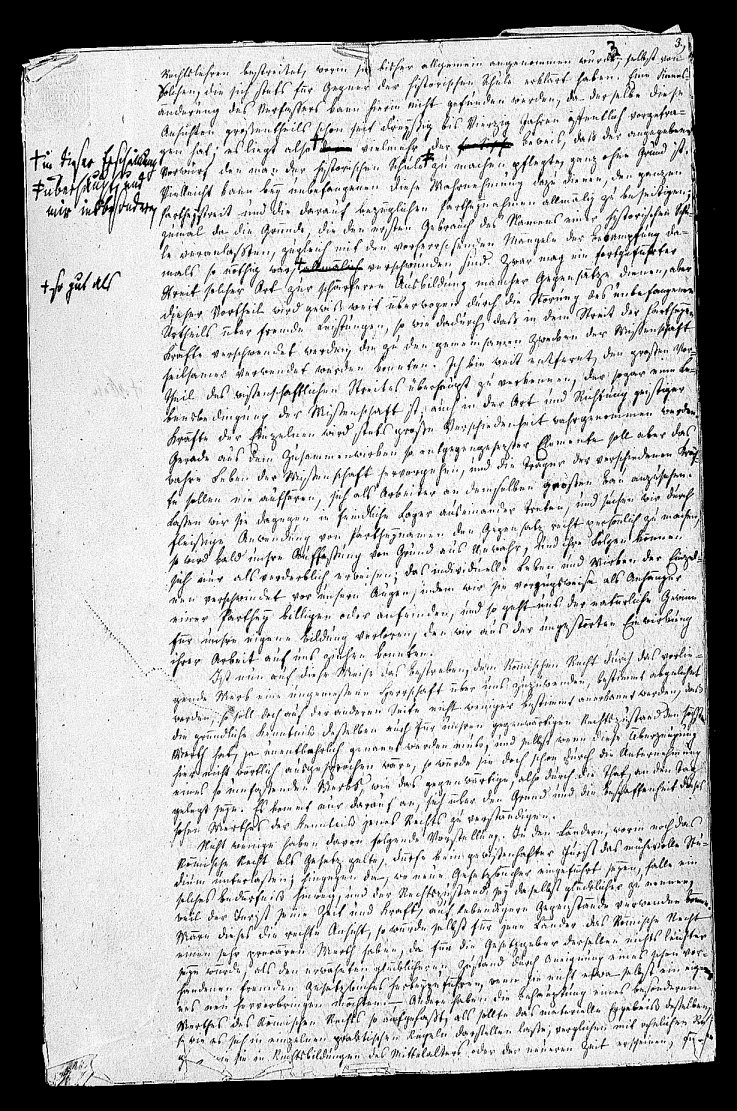 3.
Rechtslehren bestreitet, worin sie bisher allgemein angenommen wurden, selbst von
Solchen, die sich stets für Gegner der historischen Schule erklärt haben. Eine Sinnes-
änderung des Verfassers kann hierin nicht gefunden werden, da derselbe diese
Ansichten großentheils schon seit dreyßig bis vierzig Jahren öffentlich vorgetra-
gen hat; es liegt also vielmehr der Beweis, daß der angegebene
Vorwurf den man der historischen Schule zu machen pflegte, ganz ohne Grund ist.
Vielleicht kann bey unbefangenen diese Wahrnehmung dazu dienen, den ganzen
Partheystreit und die darauf bezüglichen Partheynamen allmälig zu beseitigen;
zumal da die Gründe, die den ersten Gebrauch des Namens einer historischen Schu-
le veranlaßten, zugleich mit den vorherrschenden Mängeln deren Bekämpfung da-
mals so nöthig war, allmälich verschwunden sind. Zwar mag ein fortgeführter
Streit solcher Art zur schärferen Ausbildung mancher Gegensätze dienen, aber
dieser Vortheil wird gewiß weit überwogen durch die Störung des unbefangenen
Urtheils über fremde Leistungen, so wie dadurch, daß in dem Streit der Partheyen
Kräfte verschwendet werden, die zu den gemeinsamen Zwecken der Wissenschaft
heilsamer verwendet werden könnten. Ich bin weit entfernt, den großen Vor-
theil des wissenschaftlichen Streites überhaupt zu verkennen, der sogar eine Le-
bensbedingung der Wissenschaft ist; auch in der Art und Richtung geistiger
Kräfte der Einzelnen wird stets große Verschiedenheit wahrgenommen werden.
Gerade aus dem Zusammenwirken so entgegengesetzter Elemente soll aber das
wahre Leben der Wissenschaft hervorgehen, und die Träger der verschiedenen Kräf-
te sollen nie aufhören, sich als Arbeiter an demselben großen Bau anzusehen.
Lassen wir sie dagegen in feindliche Lager auseinander treten, und suchen wir durch
fleißige Anwendung von Partheynamen den Gegensatz recht persönlich zu machen,
so wird bald unsre Auffassung von Grund aus unwahr, und ihre Folgen können
sich nur als verderblich erweisen; das individuelle Leben und Wirken der Einzel-
nen verschwindet vor unsern Augen, indem wir sie vorzugsweise als Anhänger
einer Parthey billigen oder anfeinden, und so geht uns der natürliche Gewinn
für unsre eigene Bildung verloren, den wir aus der ungestörten Einwirkung
ihrer Arbeit auf uns ziehen konnten.
Ist nun auf diese Weise das Bestreben, dem Römischen Recht durch das vorlie-
gende Werk eine ungemessene Herrschaft über uns zuzuwenden, bestimmt abgelehnt
worden, so soll doch auf der anderen Seite nicht weniger bestimmt anerkannt werden, daß
die gründliche Kenntniß desselben auch für unsren gegenwärtigen Rechtszustand den höchsten
Werth hat, ja unentbehrlich genannt werden muß, und selbst wenn diese Überzeugung
hier nicht wörtlich ausgesprochen wäre, so würde sie doch schon durch die Unternehmung
eines so umfassenden Werks, wie das gegenwärtige, also durch die That, an den Tag
gelegt seyn. Es kommt nur darauf an, sich über den Grund und die Beschaffenheit dieses
hohen Werthes der Kenntniß jenes Rechts zu verständigen.
Nicht wenige haben davon folgende Vorstellung. In den Ländern, worin noch das
Römische Recht als Gesetz gelte, dürfe kein gewissenhafter Jurist das mühevolle Stu-
dium unterlassen; hingegen da, wo neue Gesetzbücher eingeführt seyen, falle ein
solches Bedürfniß hinweg, und der Rechtszustand sey daselbst glücklicher zu nennen,
weil der Jurist seine Zeit und Kraft auf lebendigere Gegenstände verwenden könne.
Wäre dieses die rechte Ansicht, so würde selbst für jene Länder das Römische Recht
einen sehr precären Werth haben, da für die Gesetzgeber derselben nichts leichter
seyn würde, als den erwähnten glücklicheren Zustand durch Aneignung eines schon vor-
handenen fremden Gesetzbuchs herbeyzuführen, wenn sie nicht etwa selbst ein eigen-
es neu hervorbringen möchten. Andere haben die Behauptung eines besonderen
Werthes des Römischen Rechts so aufgefaßt, als sollte das materielle Ergebniß desselben,
so wie es sich in einzelnen praktischen Regeln darstellen lasse, verglichen mit ähnlichen
wie sie in Rechtsbildungen des Mittelalters oder der neueren Zeit erscheinen,
+ in dieser Erscheinung
‡ überhaupt und
mir insbesondere
+ so gut als